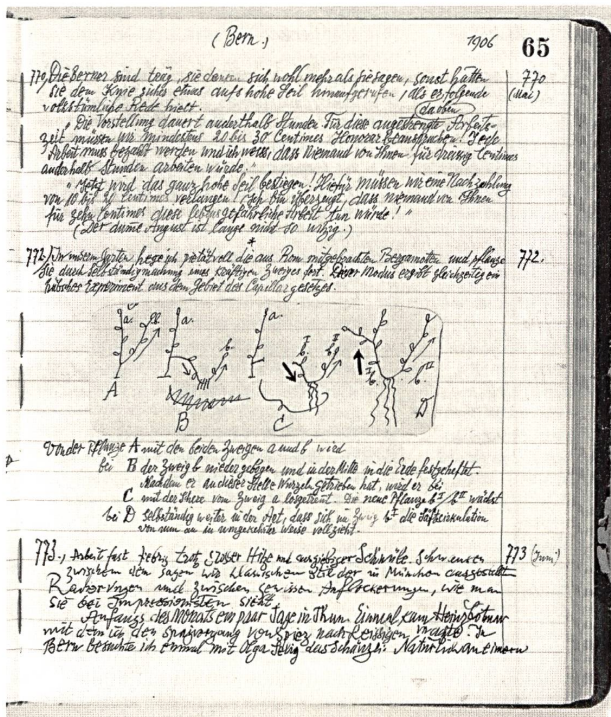 (Bern.) 1906 65
770, Die Berner sind träg, sie denken sich wohl mehr als sie sagen, sonst hätten 770
sie dem Knie nichts etwas aufs hohe Seil hinaufgerufen, als er folgende (Mai)
volkstümliche Rede hielt. (da oben)
"Die Vorstellung dauert anderthalb Stunden Für diese angestrengte Arbeits-
zeit müssen wir mindestens 20 bis 30 Centimes Honorar beanspruchen. Jede
Arbeit muss bezahlt werden und ich weiss, dass niemand von Ihnen für dreissig Centimes
anderthalb Stunden arbeiten würde.
"Jetzt wird das ganz hohe Seil bestiegen! Hiefür müssen wir eine Nachzahlung
von 10 bis 20 Centimes verlangen! Ich bin überzeugt, dass niemand von Ihnen
für zehn Centimes diese lebensgefährliche Arbeit tun würde!"
(Der dume August ist lange nicht so witzig.)
*
772, In unserm Garten hege ich pietätvoll die aus Rom mitgebrachten Bergamotten und pflanze 772.
sie durch Selbständigmachung eines Zweiges fort. Dieser Modus ergibt gleichzeitig ein
hübsches Experiment aus dem Gebiet des Capillargesetzes.
a. b. a. b. a. b I b II b I b II
A B C D
Von der Pflanze A mit den beiden Zweigen a und b wird
bei B der Zweig b niedergebogen und in der Mitte in die Erde festgeheftet.
Nachdem er an dieser Stelle Wurzeln getrieben hat, wird er bei
C mit der Schere vom Zweig a losgetrennt. Die neue Pflanze b I / b II wächst
bei D selbständig weiter in der Art, dass sich im Zweig b I die Saftcirculation
von nun an in umgekehrter Weise vollzieht.
773., Arbeit fast Febris trotz grosser Hitze und ausgiebiger Schwüle. Schwanken 773 (Juni)
zwischen dem sagen wir klassischen Stil der in München ausgestellten
Radierungen und zwischen gewissen Auflockerungen, wie man
sie bei Impressionisten sieht.
Anfangs des Monats ein paar Tage in Thun Einmal kam Heinz Lotmar
mit dem ich den Spaziergang von Spiez nach Leissigen machte. In
Bern besuchte ich einmal mit Olga das Schänzli. Natürlich an einem